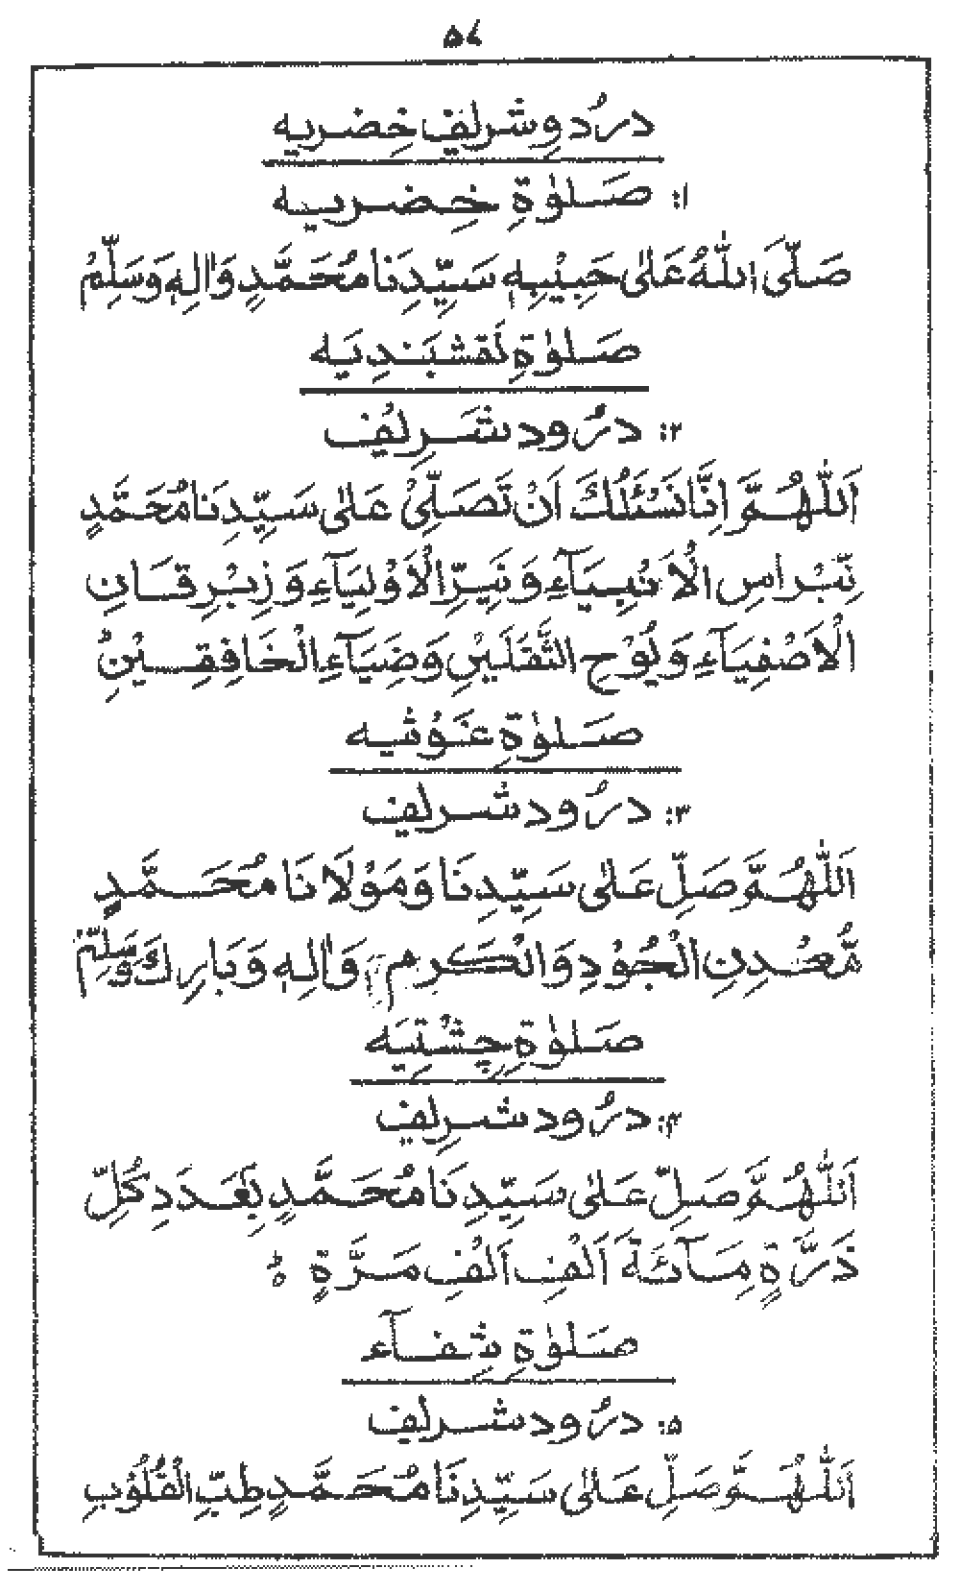 ۵۴
درُود شریف خِضریہ
۱: صَلوٰۃِ خِضریہ
صَلَّی اللہُ عَلٰی حَبِیْبِہٖ سَیِّدِنَا مُحَمَّدٍ وَّاٰلِہٖ وَسَلِّمُ
صَلوٰۃِ نَقشبَندِیَہ
۲: درُود شَرِیُف
اَللّٰھُمَّ اِنَّا نَسْئَلُكَ اَنْ تَصَلِّیْ عَلٰی سَیِّدِنَا مُحَمَّدٍ
نِّبْرَاسِ الْاَنْبِیَآءِ وَنَیِّرِ الْاَوْلِیَآءِ وَزِبْرِقَانِ
الْاَصْفِیَآءِ وَیُوْحِ الثَّقَلَیْنِ وَضِیَآءِ الْخَافِقِیْنِ
صَلوٰۃِ غَوْثیہ
۳: درُود شریف
اَللّٰھُمَّ صَلِّ عَلٰی سَیِّدِنَا وَمَوْلَانَا مُحَمَّدٍ
مَّعْدِنِ الْجُوْدِ وَالْکَرَمِ وَاٰلِہٖ وَبَارِكَ وَسَلِّمْ
صَلوٰۃِ چِشْتِیَہ
۴: درُود شرِیف
اَللّٰھُمَّ صَلِّ عَلٰی سَیِّدِنَا مُحَمَّدٍ بِعَدَدِ کُلِّ
ذَرَّۃٍ مِآئَۃَ اَلْفِ اَلْفِ مَرَّۃٍ ؕ
صَلوٰۃِ شِفآء
۵: درُود شریف
اَللّٰھُمَّ صَلِّ عَلٰی سَیِّدِنَا مُحَمَّدٍ طِبِّ الْقُلُوْبِ